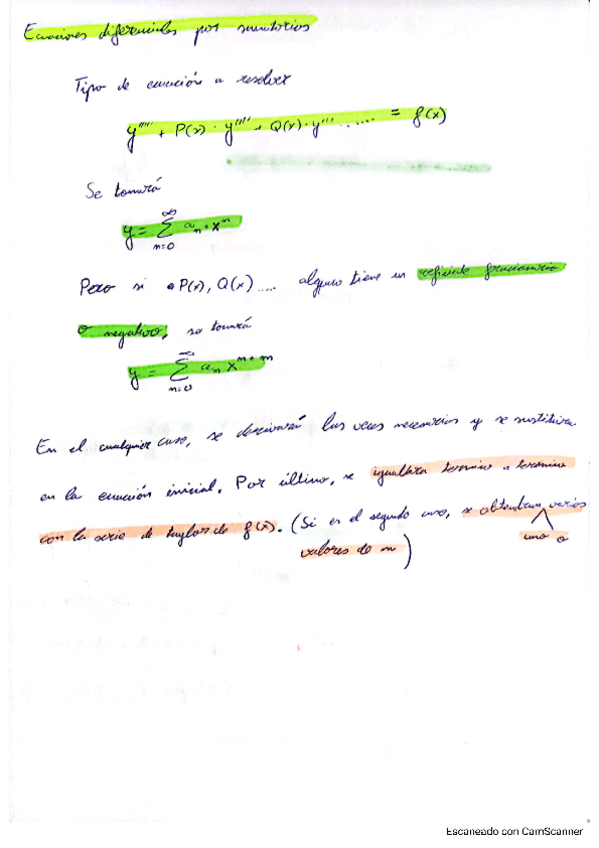 Ecuaciones diferenciales por sumatorios
Tipo de ecuación a resolver
y''''' + P(x) · y'''' + Q(x) · y''' ....... = f(x)
Se tomará
y = ∑_{n=0}^{∞} a_n · x^n
Pero si P(x), Q(x) ..... alguno tiene un
o negativo, se tomará
y = ∑_{n=0}^{∞} a_n x^{n+m}
En el cualquier caso, se derivará las veces necesarias y se sustituira
en la ecuación inicial. Por último, se igualara termino a termino
con la serie de taylor de f(x). (Si es el segundo caso, se obtendran varios
uno o
valores de m)
Escaneado con CamScanner